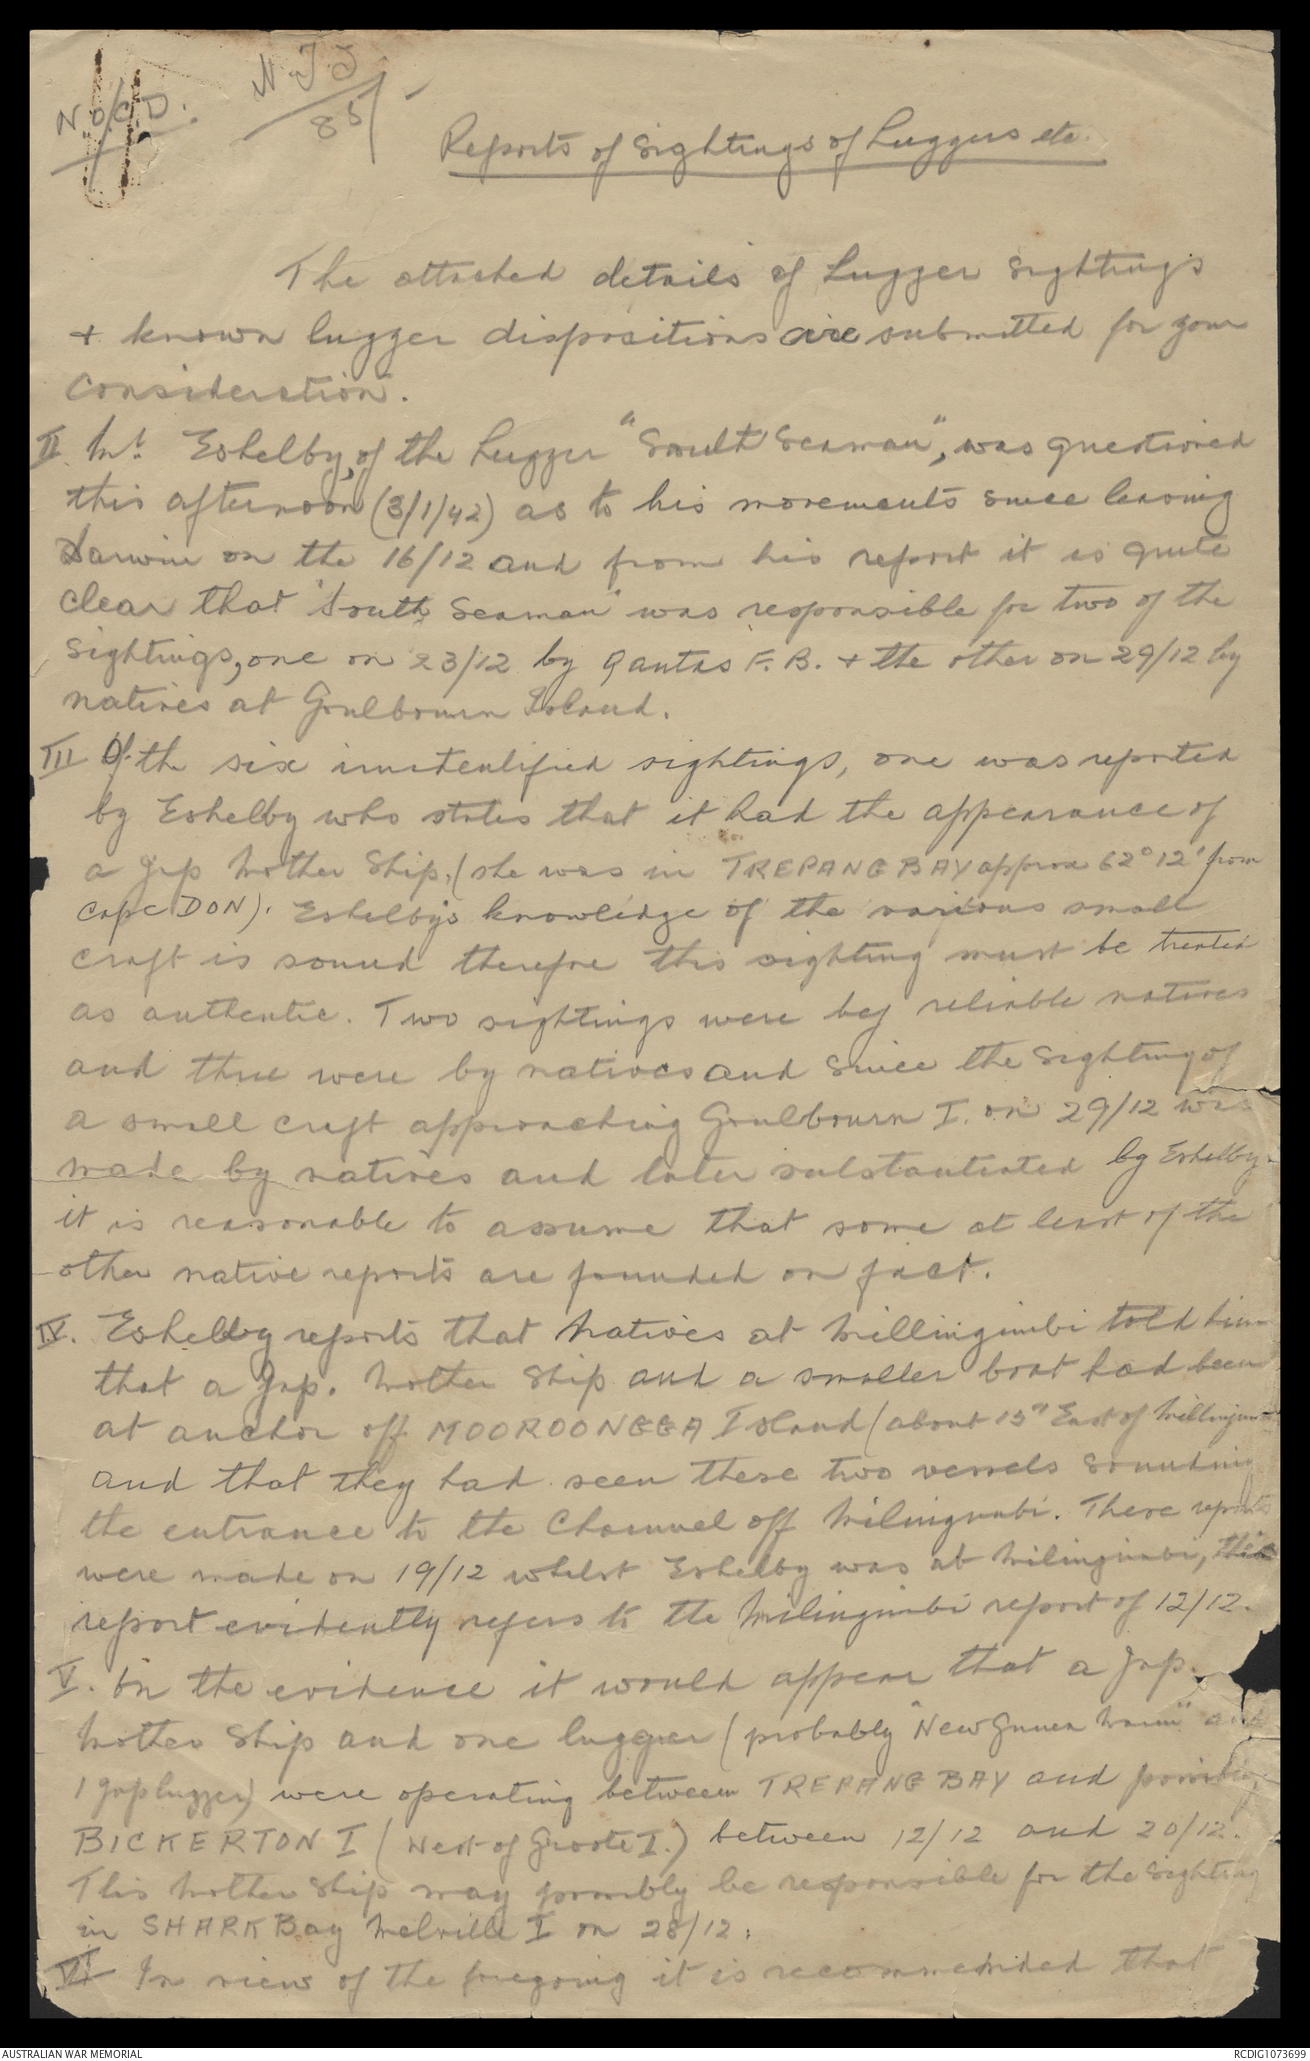 N.O.C.D.
85
Reports of Sightings of Luggers etc.
The attached details of Lugger Sightings
+ known lugger dispositions are submitted for your
consideration.
II. Mr. Eshelby, of the Lugger "South Seaman", was questioned
this afternoon (3/1/42) as to his movements since leaving
Darwin on the 16/12 and from his report it is quite
clear that "South Seaman" was responsible for two of the
Sightings, one on 23/12 by Qantas F.B. + the other on 29/12 by
natives at Goulbourn Island.
III Of the six unidentified sightings, one was reported
by Eshelby who states that it had the appearance of
a Jap Mother Ship, (she was in TREPANG BAY approx 62° 12' from
Cape DON). Eshelby's knowledge of the various small
craft is sound therefore this sighting must be treated
as authentic. Two sightings were by reliable natives
and three were by natives and since the sighting of
a small craft approaching Goulbourn I. on 29/12 was
made by natives and later substantiated by Eshelby
it is reasonable to assume that some at least of the
other native reports are founded on fact.
IV. Eshelby reports that Natives at Millingimbi told him
that a Jap. Mother Ship and a smaller boat had been
at anchor off MOOROONGGA Island (about 15" East of
and that they had seen these two vessels sounding
the entrance to the Channel off Milingimbi. These reports
were made on 19/12 whilst Eshelby was at Milingimbi, this
report evidently refers to the Milingimbi report of 12/12.
V. On the evidence it would appear that a Jap.
Mother Ship and one lugger (probably "New Guinea Maru" and
1 Jap lugger) were operating between TREPANG BAY and possibly
BICKERTON I (West of Groote I.) between 12/12 and 20/12.
This Mother Ship may possibly be responsible for the Sighting
in SHARK Bay Melville I on 28/12.
VI In view of the foregoing it is recommended that
AUSTRALIAN WAR MEMORIAL
RCDIG1073699